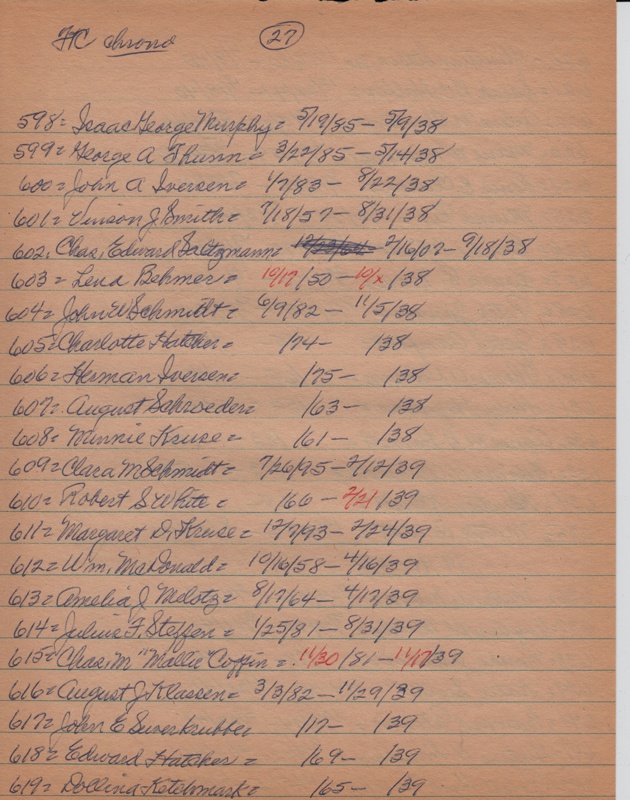 FC chrono 27
598= Isaac George Murphy= 5/19/85 - 5/9/38
599= George A Thunn= 3/22/85 - 5/14/38
600= John A Iversen= 1/7/83 - 8/22/38
601= Vinson J. Smith= 7/18/57 - 8/31/38
602. Chas. Edward Saltzmann= 2/16/02 - 9/18/38
603= Lena Behmer= 10/17/50 - 10/x/38
604= John W Schmidt= 6/9/82 - 11/5/38
605= Charlotte Hatcher= /74 - /38
606= Herman Iversen= /75 - /38
607= August Schroeder= /63 - /38
608= Minnie Kruse= /61 - /38
609= Clara M Schmidt= 7/26/95 - 2/12/39
610= Robert S White= /66 - 2/21/39
611= Margaret D. Kruse= 12/7/93 - 2/24/39
612= Wm. McDonald= 10/16/58 - 4/16/39
613= Amelia J Melotz= 8/17/64 - 4/17/39
614= Julius F. Steffen= 1/25/81 - 8/31/39
615= Chas. M "Mattie" Coffin= 11/30/81 - 11/17/39
616= August J Klassen= 3/3/82 - 11/29/39
617= John E Suverkrubbe /17 - /39
618= Edward Hatcher= /69 - /39
619= Dollina Ketchmark= /65 - /39